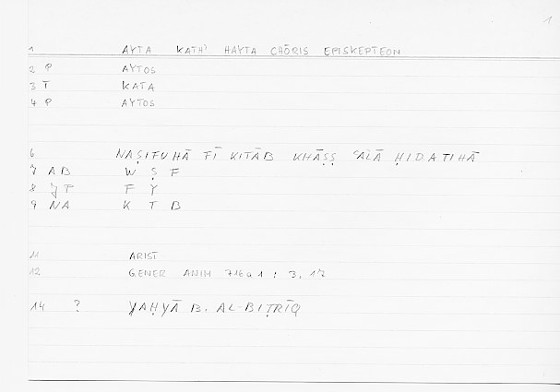 1
1 AYTA KATH' HAYTA CHŌRIS EPISKEPTEON
2 P AYTOS
3 T KATA
4 P AYTOS
6 NAṢIFUHĀ FĪ KITĀB KHĀṢṢ ʿALĀ ḤIDATIHĀ
7 AB W Ṣ F
8 JT F Y
9 NA K T B
11 ARIST
12 GENER ANIM 716a1 : 3.17
14 ? YAḤYĀ B. AL-BIṬRĪQ